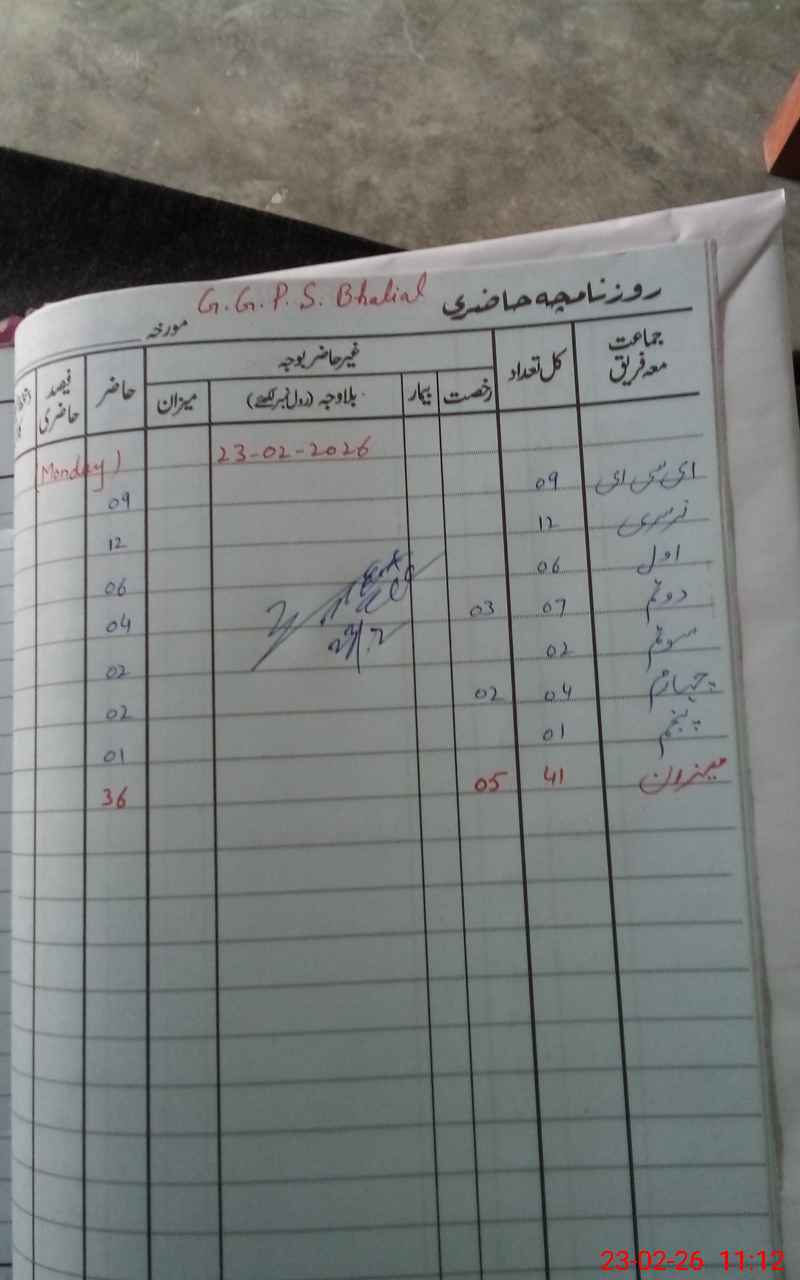 روزنامچہ حاضری G.G.P.S. Bhalial مورخہ
جماعت معہ فریق کل تعداد غیر حاضر بوجہ حاضر فیصد حاضری
رخصت بیمار بلاوجہ (رول نمبر لکھئے) میزان
23-02-2026 (Monday)
ای سی ای 09 09
نرسری 12 12
اول 06 06
دوئم 07 03 04
سوئم 02 02
چہارم 04 02 02
پنجم 01 01
میزان 41 05 36
23/2
23-02-26 11:12